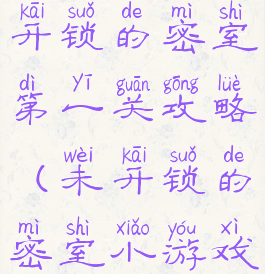 kāi suǒ de mì shì
开锁的密室
dì yī guān gōng lüè
第一关攻略
wèi kāi suǒ de
（未开锁的
mì shì xiǎo yóu xì
密室小游戏